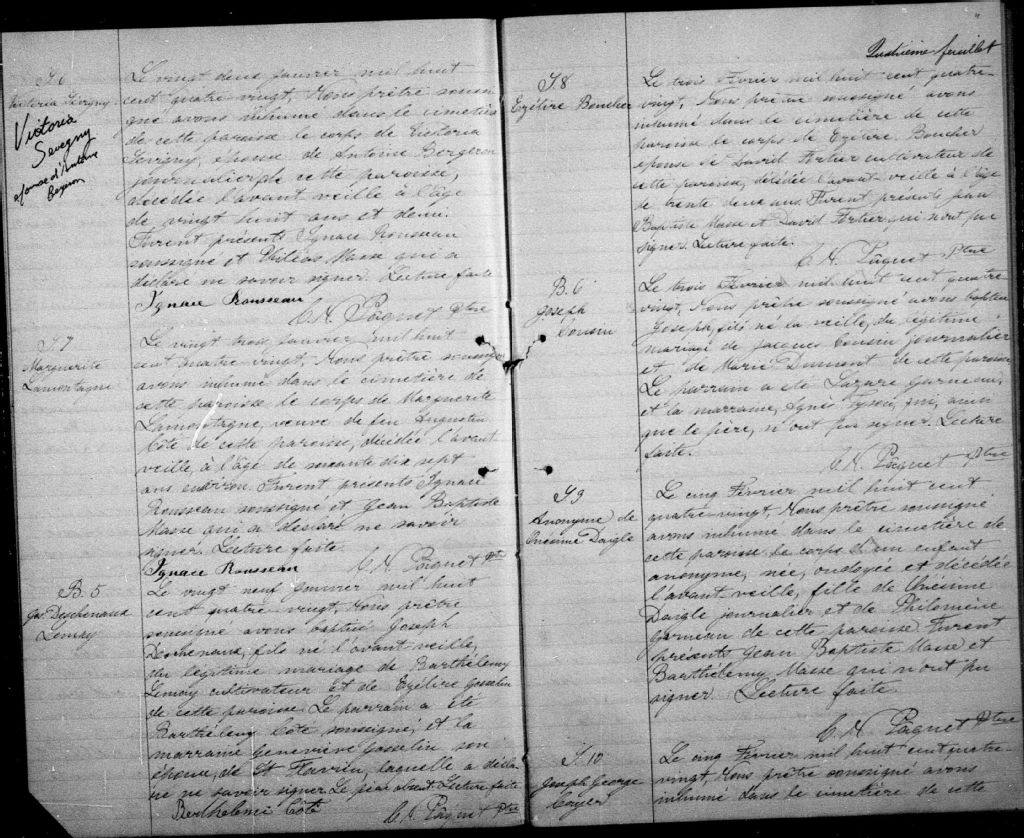 S. 6
Victoria Sévigny
Victoria
Sevegny
épouse d'Antoine
Bergeron
Le vingt deux janvier mil huit
cent quatre-vingt, Nous prêtre soussi-
gné avons inhumé dans le cimetière
de cette paroisse le corps de Victoria
Sévigny, épouse de Antoine Bergeron
journalier de cette paroisse,
décédée l'avant veille à l'âge
de vingt huit ans et demi.
Furent présents Ignace Rousseau
soussigné et Philéas Masse qui a
déclaré ne savoir signer. Lecture faite
Ignace Rousseau
C. N. Pâquet Ptre
S. 7
Marguerite
Lamontagne
Le vingt trois janvier mil huit
cent quatre vingt, Nous prêtre soussigné
avons inhumé dans le cimetière de
cette paroisse le corps de Marguerite
Lamontagne, veuve de feu Augustin
Côté de cette paroisse, décédée l'avant
veille, à l'âge de soixante dix sept
ans environ. Furent présents Ignace
Rousseau soussigné et Jean Baptiste
Masse qui a déclaré ne savoir
signer. Lecture faite.
Ignace Rousseau
C. N. Pâquet Ptre
B. 5
Jos. Deschenaux
Lemay
Le vingt neuf janvier mil huit
cent quatre-vingt, Nous prêtre
soussigné avons baptisé Joseph
Deschenaux, fils né l'avant veille,
du légitime mariage de Barthélemy
Lemay cultivateur et de Ezélire Gosselin
de cette paroisse. Le parrain a été
Barthélemy Côté soussigné, et la
marraine Geneviève Gosselin son
épouse, de St Flavien, laquelle a décla-
ré ne savoir signer. Le père absent. Lecture faite
Berthelemé Côté
C. N. Pâquet Ptre
Quatrième feuillet
S. 8
Ezélire Boucher
Le trois Février mil huit cent quatre-
vingt, Nous prêtre soussigné avons
inhumé dans le cimetière de cette
paroisse le corps de Ezélire Boucher
épouse de David Fortier cultivateur de
cette paroisse, décédée l'avant veille à l'âge
de trente deux ans. Furent présents Jean
Baptiste Masse et David Fortier qui n'ont pu
signer. Lecture faite.
C. N. Pâquet Ptre
B. 6
Joseph
Cousin
Le trois Février mil huit cent quatre
vingt, Nous prêtre soussigné avons baptisé
Joseph, fils né la veille, du légitime
mariage de Jacques Cousin journalier
et de Marie Dumont de cette paroisse
Le parrain a été Lazare Garneau,
et la marraine, Agnès qui, ainsi
que le père, n'ont pu signer. Lecture
faite.
C. N. Pâquet Ptre
S. 9
Anonyme de
Onésime Daigle
Le cinq Février mil huit cent
quatre-vingt, Nous prêtre soussigné
avons inhumé dans le cimetière de
cette paroisse le corps d'un enfant
anonyme, née, ondoyée et décédée
l'avant-veille, fille de Onésime
Daigle journalier et de Philomène
Garneau de cette paroisse. Furent
présents Jean Baptiste Masse et
Barthélemy Masse qui n'ont pu
signer. Lecture faite.
C. N. Pâquet Ptre
S. 10
Joseph George
Coyer
Le cinq Février mil huit cent quatre-
vingt, Nous prêtre soussigné avons
inhumé dans le cimetière de cette